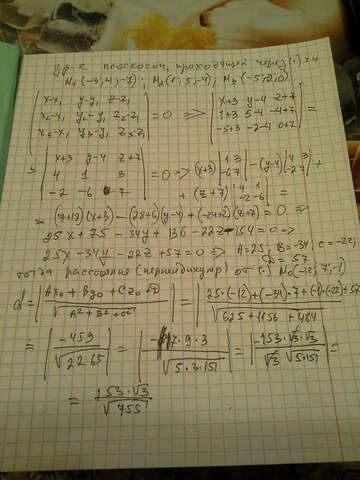 ур-е плоскости, проходящей через (·) x 4
M₁(-3;4;-7); M₂(1;5;-4); M₃(-5;-2;0)
|x-x₁ y-y₁ z-z₁| |x+3 y-4 z+7|
|x₂-x₁ y₂-y₁ z₂-z₁| = 0 => |1+3 5-4 -4+7| =
|x₃-x₁ y₃-y₁ z₃-z₁| |-5+3 -2-4 0+7|
|x+3 y-4 z+7|
|4 1 3| = 0 -> (x+3) |1 3; -6 7| - (y-4) |4 3; -2 7| +
|-2 -6 7| + (z+7) |4 1; -2 -6| =
= (7+18)(x+3) - (28+6)(y-4) + (-24+2)(z+7) = 0 =>
25x + 75 - 34y + 136 - 22z - 154 = 0 =>
25x - 34y - 22z + 57 = 0 => A=25; B=-34; C=-22;
D=57
тогда расстояние (перпендикуляр) от (·) M₀(-12; 7; -1)
d = |Ax₀ + By₀ + Cz₀ + D / √A² + B² + C²| = |25·(-12) + (-34)·7 + (-1)·(-22) + 57 / √625 + 1156 + 484|
= |-459 / √2265| = |- 9·3 / √5·3·151| = |-153·√3·√3 / √3 √5·151| =
= 153·√3 / √755